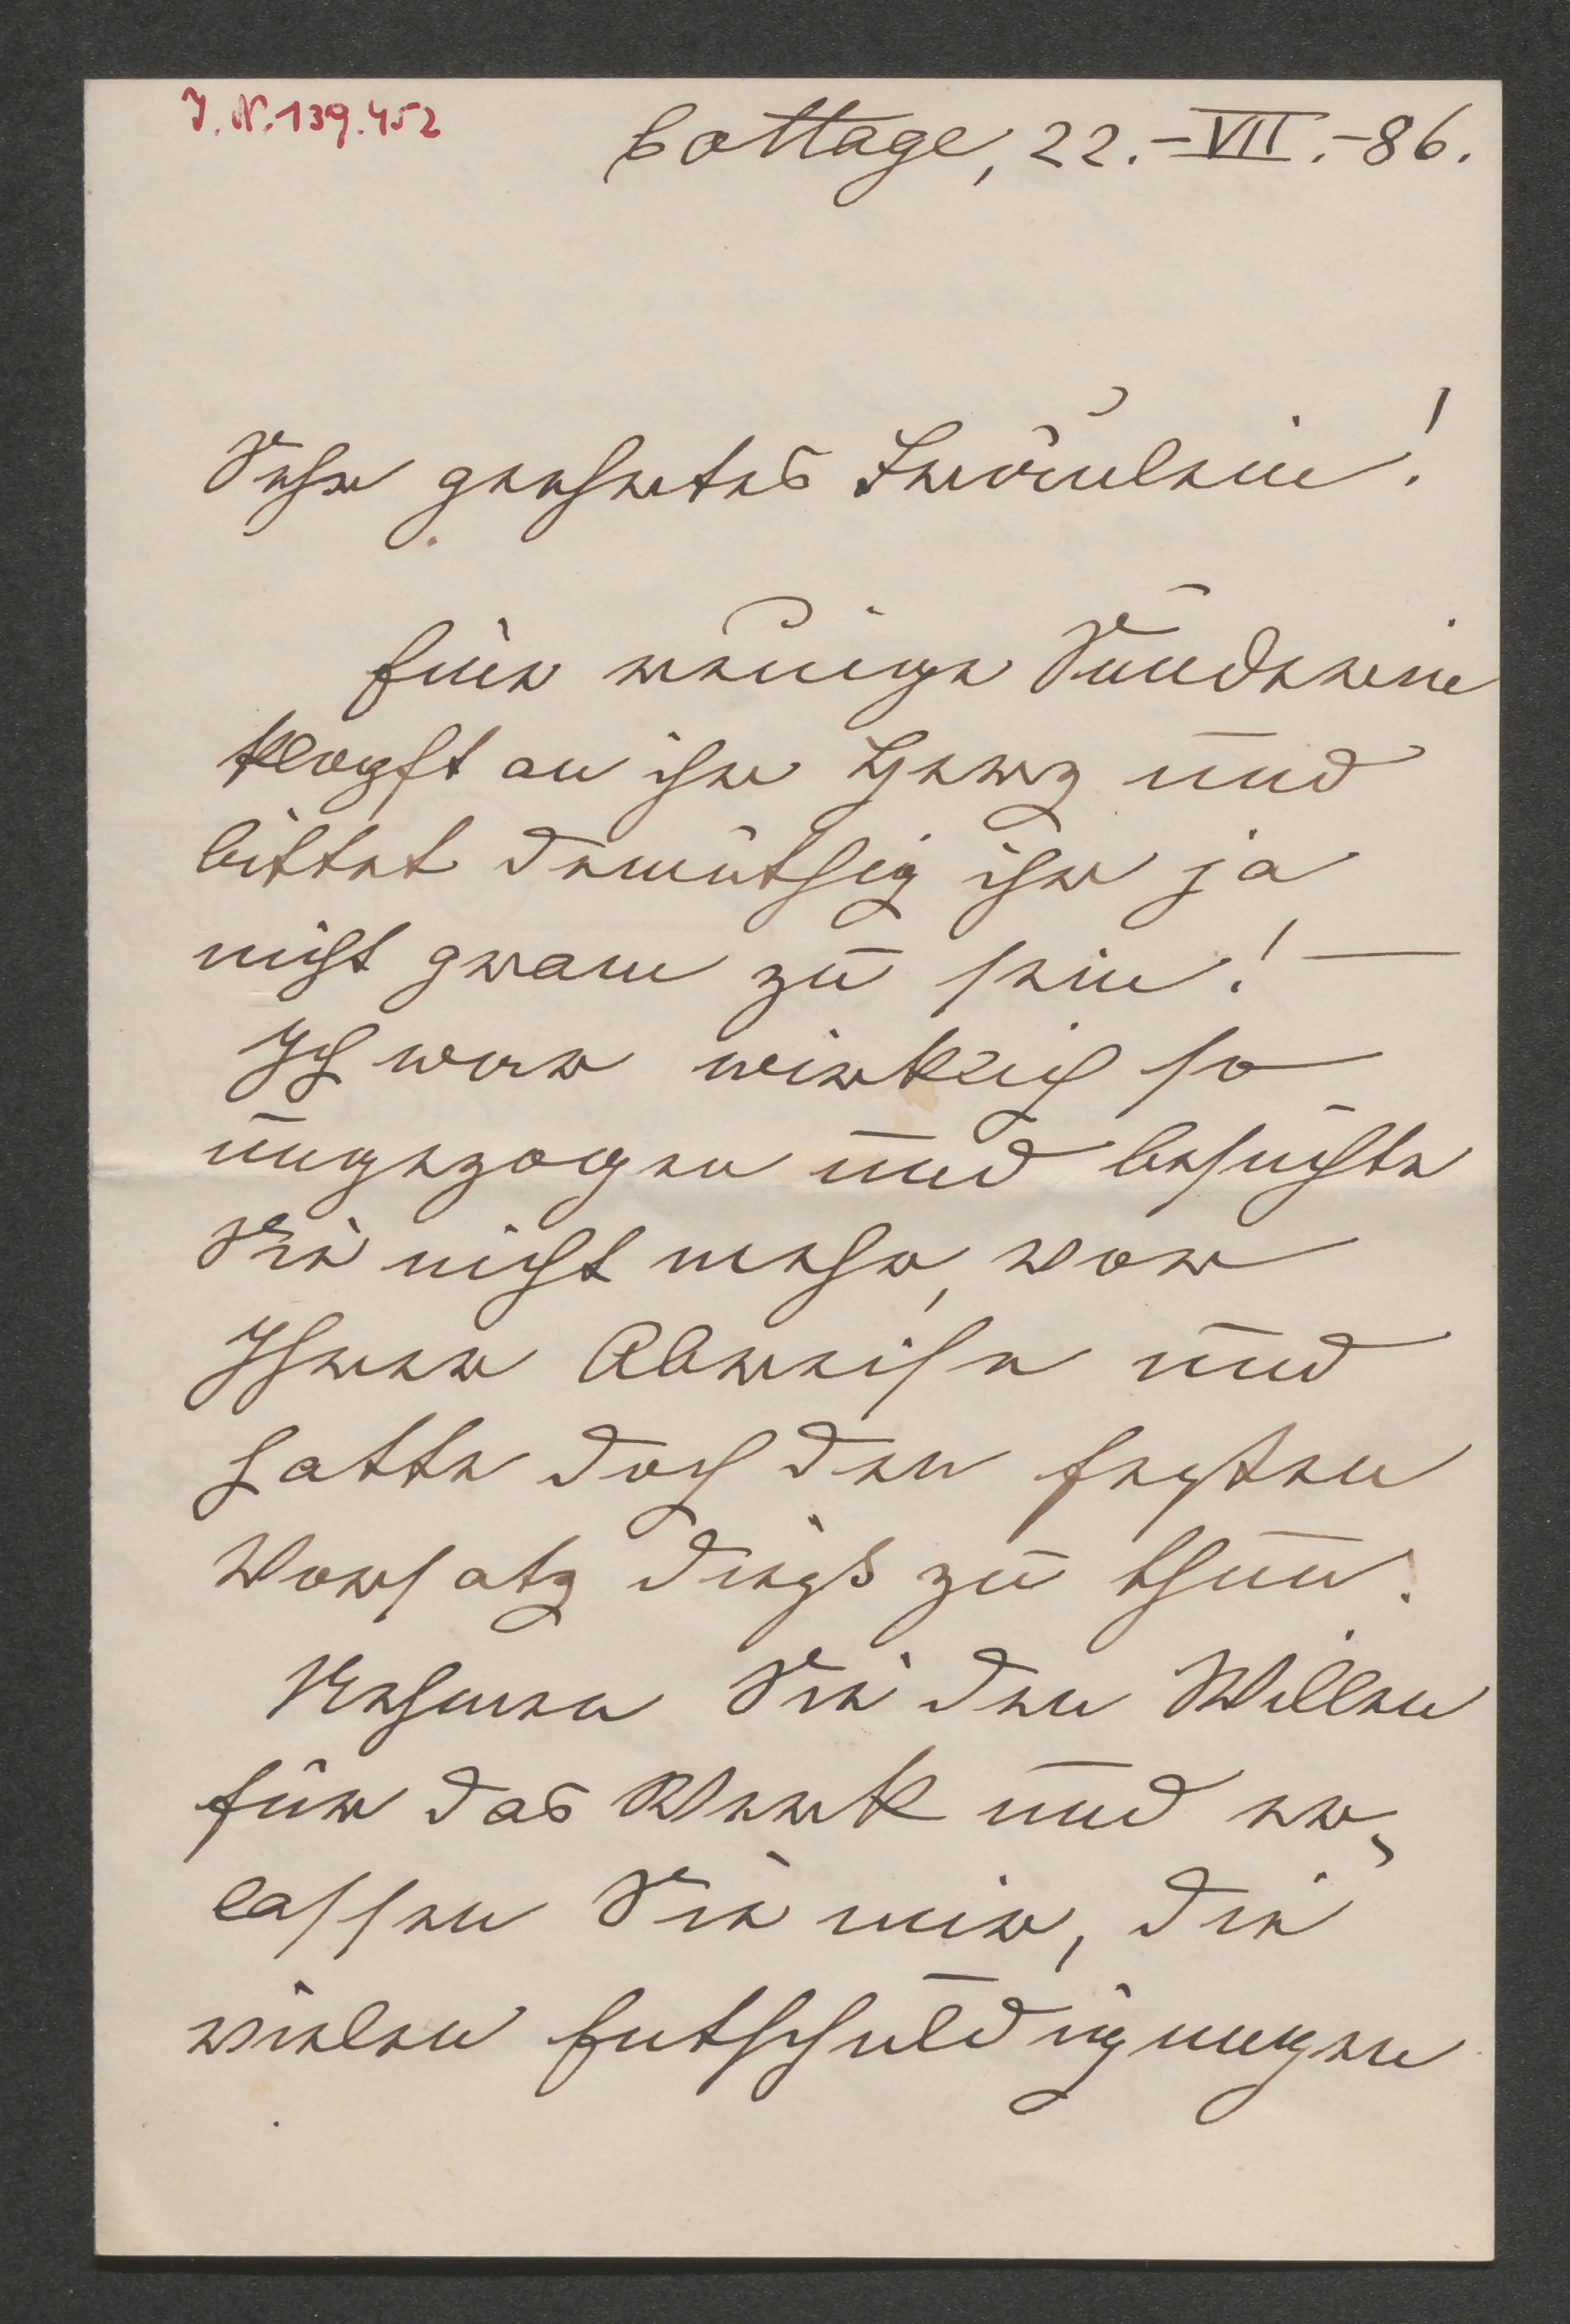 I.N. 139.452
Cottage, 22.-VII.-86.
Sehr geehrtes Fräulein!
Eine reuige Sünderin
klopft an ihr Herz und
bittet demüthig ihr ja
nicht gram zu sein! —
Ich war wirklich so
ungezogen und besuchte
Sie nicht mehr, vor
Ihrer Abreise und
hatte doch den festen
Vorsatz dieß zu thun.
Nehmen Sie den Willen
für das Werk und er-
lassen Sie mir, die
vielen Entschuldigungen